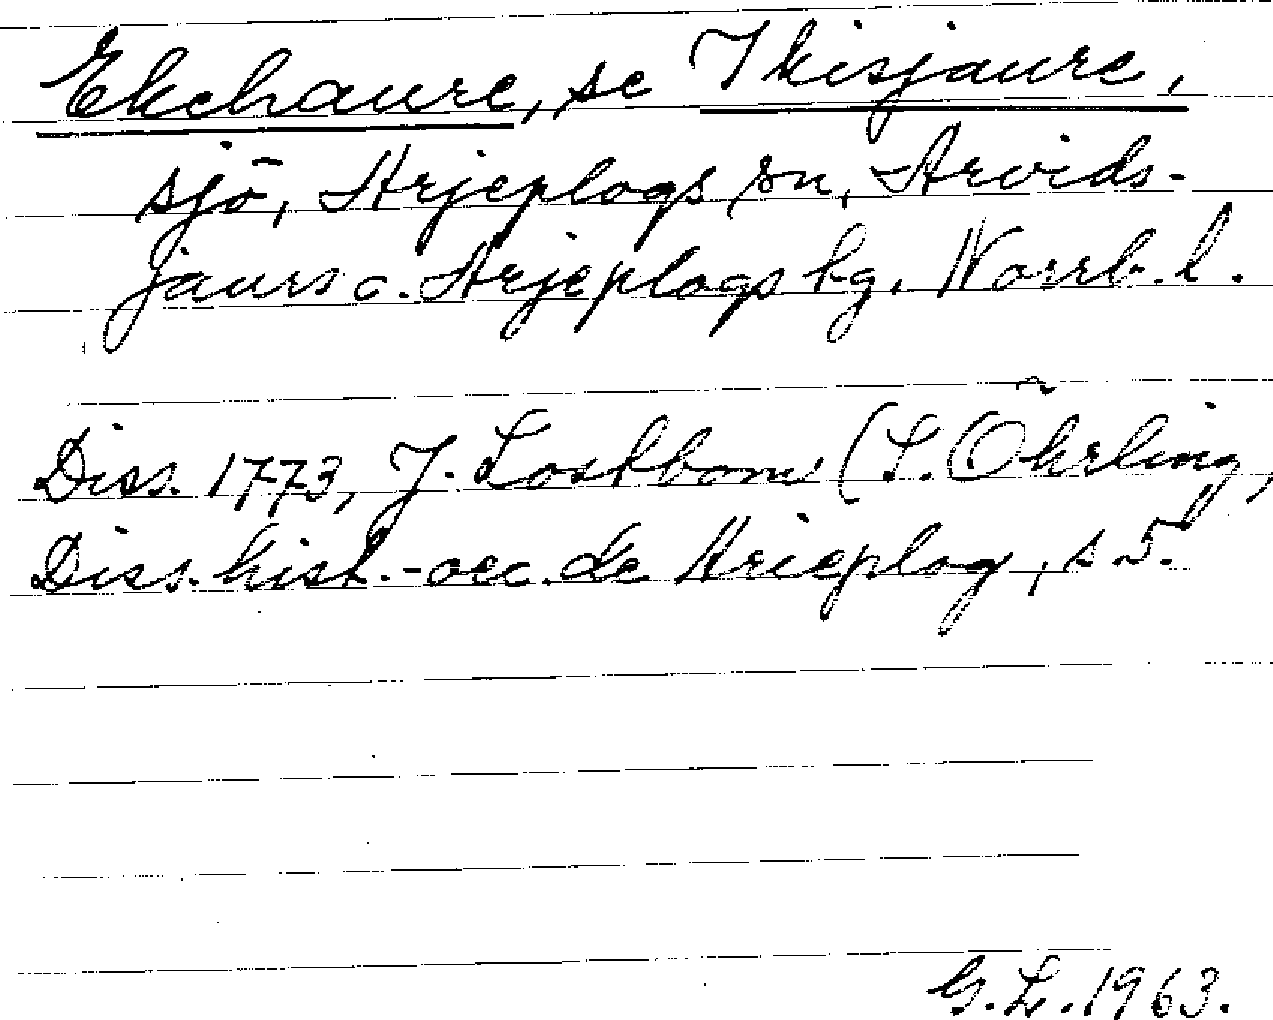 Ekehaure, se Ikisjaure,
sjö, Arjeplogs sn, Arvids-
jaurs o. Arjeplogs tg. Norrb. l.
Diss. 1773, J. Lostbom (L. Öhrling,
Diss. hist.-oec. de Arieplog, s 5.
G.L. 1963.